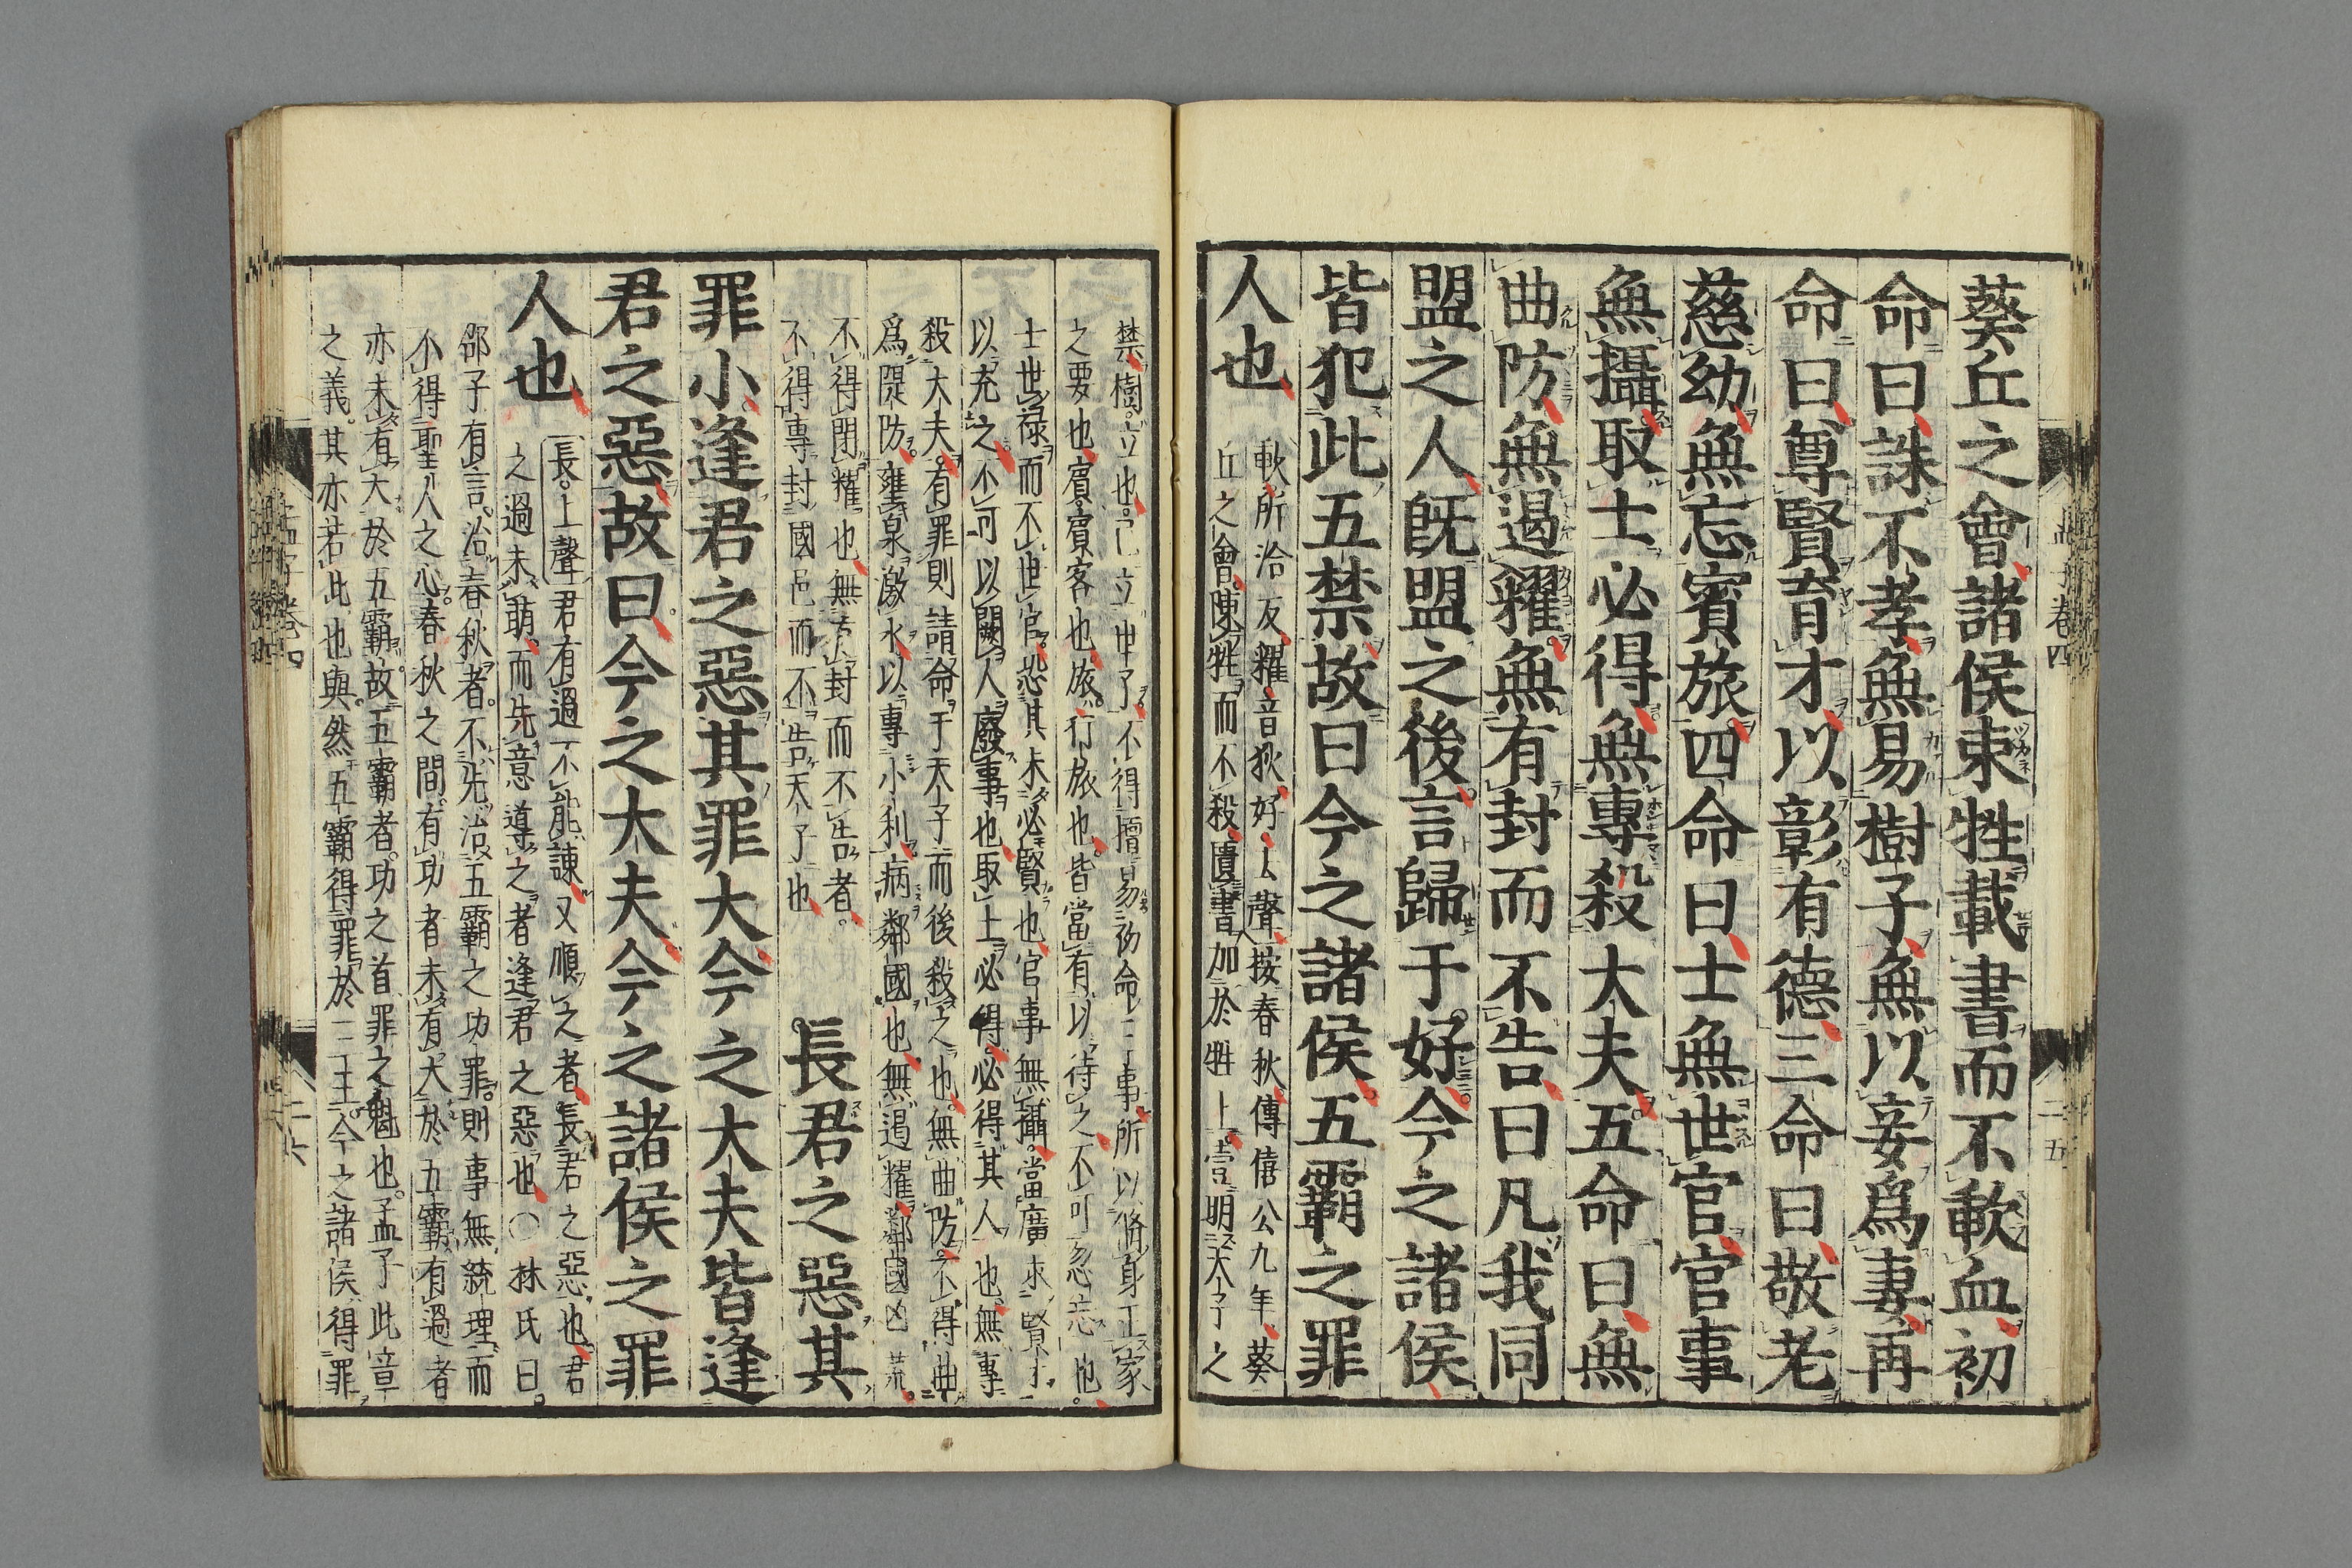 葵丘之會諸侯束牲載書而不歃血初
命曰誅不孝無易樹子無以妾爲妻再
命曰尊賢育才以彰有德三命曰敬老
慈幼無忘賓旅四命曰士無世官官事
無攝取士必得無專殺大夫五命曰無
曲防無遏糴無有封而不告曰凡我同
盟之人旣盟之後言歸于好今之諸侯
皆犯此五禁故曰今之諸侯五霸之罪
人也
歃所洽反糴音狄好上聲按春秋傳僖公九年葵
丘之會陳牲而不殺讀書加於牲上壹明天子之
孟子卷四
二五
禁樹立也已立世子不得擅易初命三事所以脩身正家
之要也賓賓客也旅行旅也皆當有以待之不可忽忘也
士世祿而不世官恐其未必賢也官事無攝當廣求賢才
以充之不可以闕人廢事也取士必得必得其人也無專
殺大夫有罪則請命于天子而後殺之也無曲防不得曲
爲隄防壅泉激水以專小利病鄰國也無遏糴鄰國凶荒
不得閉糴也無有封而不告者
不得專封國邑而不告天子也
長君之惡其
罪小逢君之惡其罪大今之大夫皆逢
君之惡故曰今之大夫今之諸侯之罪
人也
長上聲君有過不能諫又順之者長君之惡也君
之過未萌而先意導之者逢君之惡也○林氏曰
邵子有言治春秋者不先治五霸之功罪則事無統理而
不得聖人之心春秋之間有功者未有大於五霸有過者
亦未有大於五霸故五霸者功之首罪之魁也孟子此章
之義其亦若此也與然五霸得罪於三王今之諸侯得罪
孟子卷四
二六